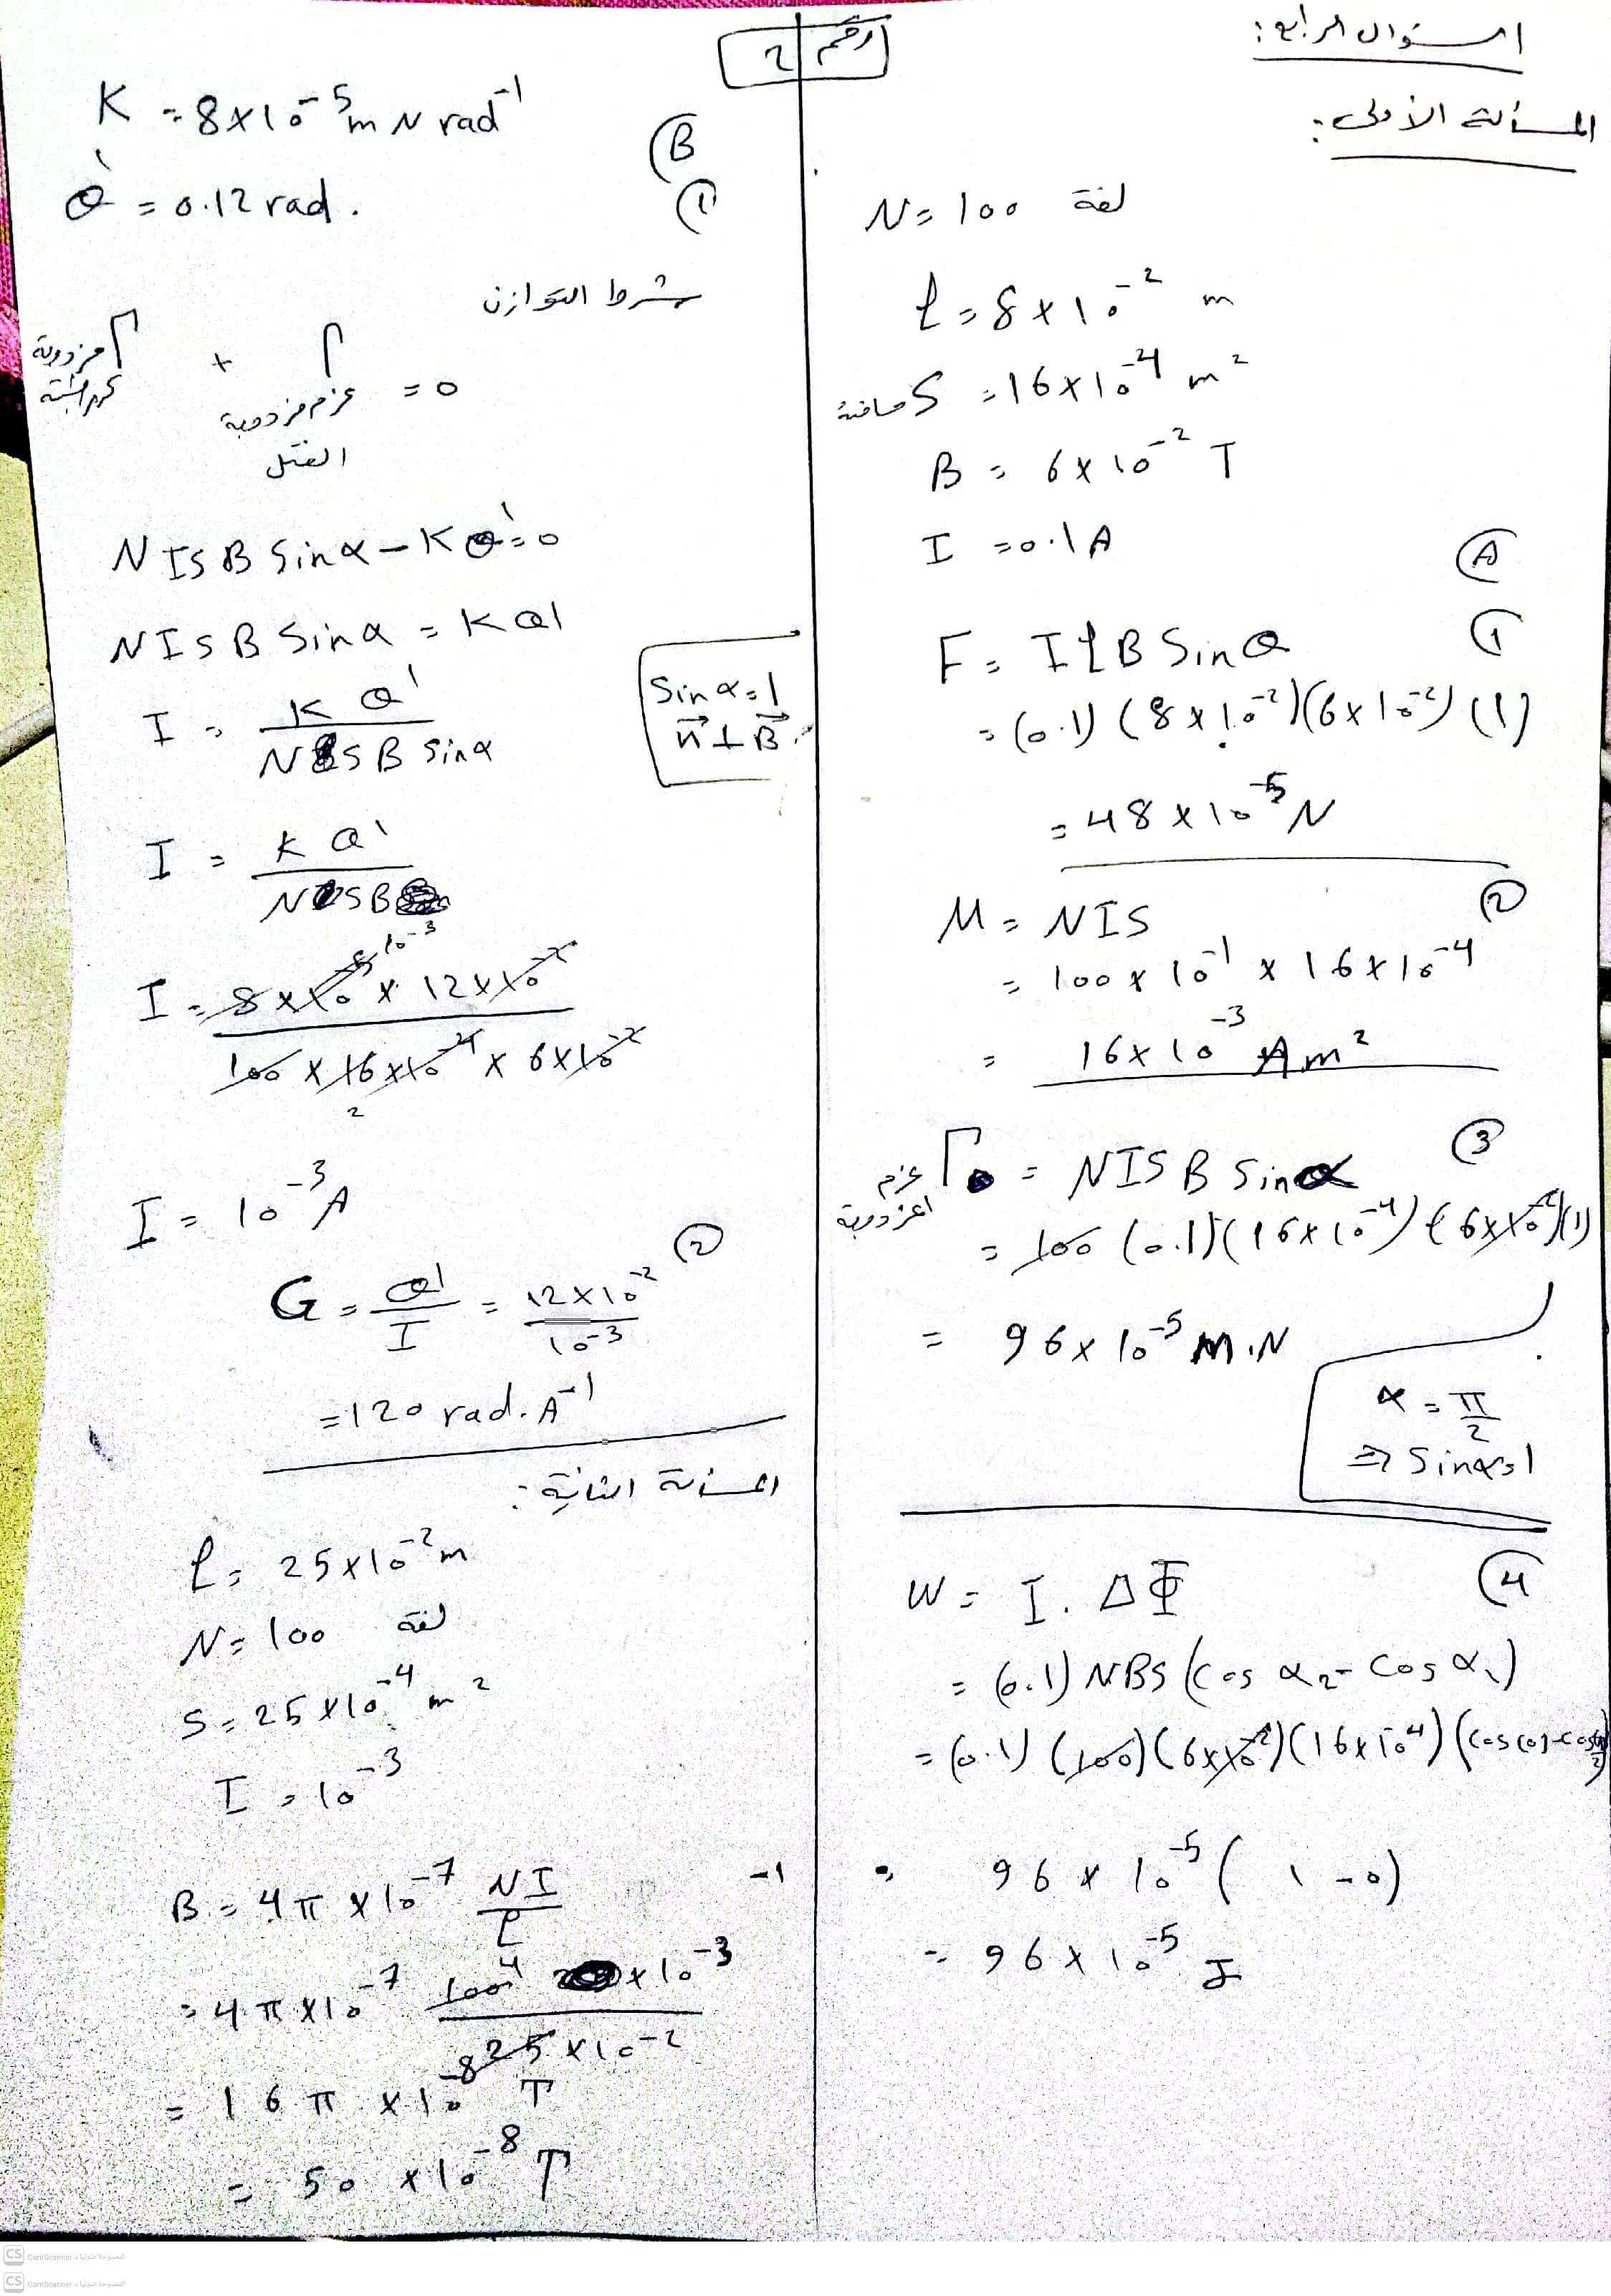 رقم 2
السؤال الرابع:
المسألة الأولى:
N = 100 لفة
ℓ = 8 × 10⁻² m
S = 16 × 10⁻⁴ m²
B = 6 × 10⁻² T
I = 0.1 A
Ⓐ
①
F = I ℓ B Sin θ
= (0.1) (8 × 10⁻²)(6 × 10⁻²) (1)
= 48 × 10⁻⁵ N
②
M = NIS
= 100 × 10⁻¹ × 16 × 10⁻⁴
= 16 × 10⁻³ A m²
③
عزم Γ = NISB Sin α
= 100 (0.1)(16 × 10⁻⁴) (6 × 10⁻²)(1)
= 96 × 10⁻⁵ m.N
α = π/2
⇒ Sin α = 1
④
W = I . ΔΦ
= (0.1) NBS (Cos α₂ - Cos α₁)
= (0.1) (100) (6 × 10⁻²)(16 × 10⁻⁴) (cos(0) - cos π/2)
= 96 × 10⁻⁵ ( 1 - 0)
= 96 × 10⁻⁵ J
K = 8 × 10⁻⁵ m N rad⁻¹
Ⓑ
θ' = 0.12 rad .
①
شرط التوازن
Γ مزدوجة + Γ عزم مزدوجة الفتل = 0
N I S B Sin α - K θ' = 0
N I S B Sin α = K θ'
I = K θ' / N S B Sin α
Sin α = 1
n⃗ ⊥ B⃗
I = K θ' / N S B
I = 8 × 10⁻⁵ × 12 × 10⁻² / 100 × 16 × 10⁻⁴ × 6 × 10⁻²
10⁻³
2
I = 10⁻³ A
②
G = θ' / I = 12 × 10⁻² / 10⁻³
= 120 rad. A⁻¹
المسألة الثانية:
ℓ = 25 × 10⁻² m
N = 100 لفة
S = 25 × 10⁻⁴ m²
I = 10⁻³
B = 4π × 10⁻⁷ NI / ℓ
-1
= 4π × 10⁻⁷ 100 4 × 10⁻³ / 25 × 10⁻²
= 16 π × 10⁻⁸ T
= 50 × 10⁻⁸ T
CS CamScanner الممسوحة ضوئيا بـ
CS CamScanner الممسوحة ضوئيا بـ